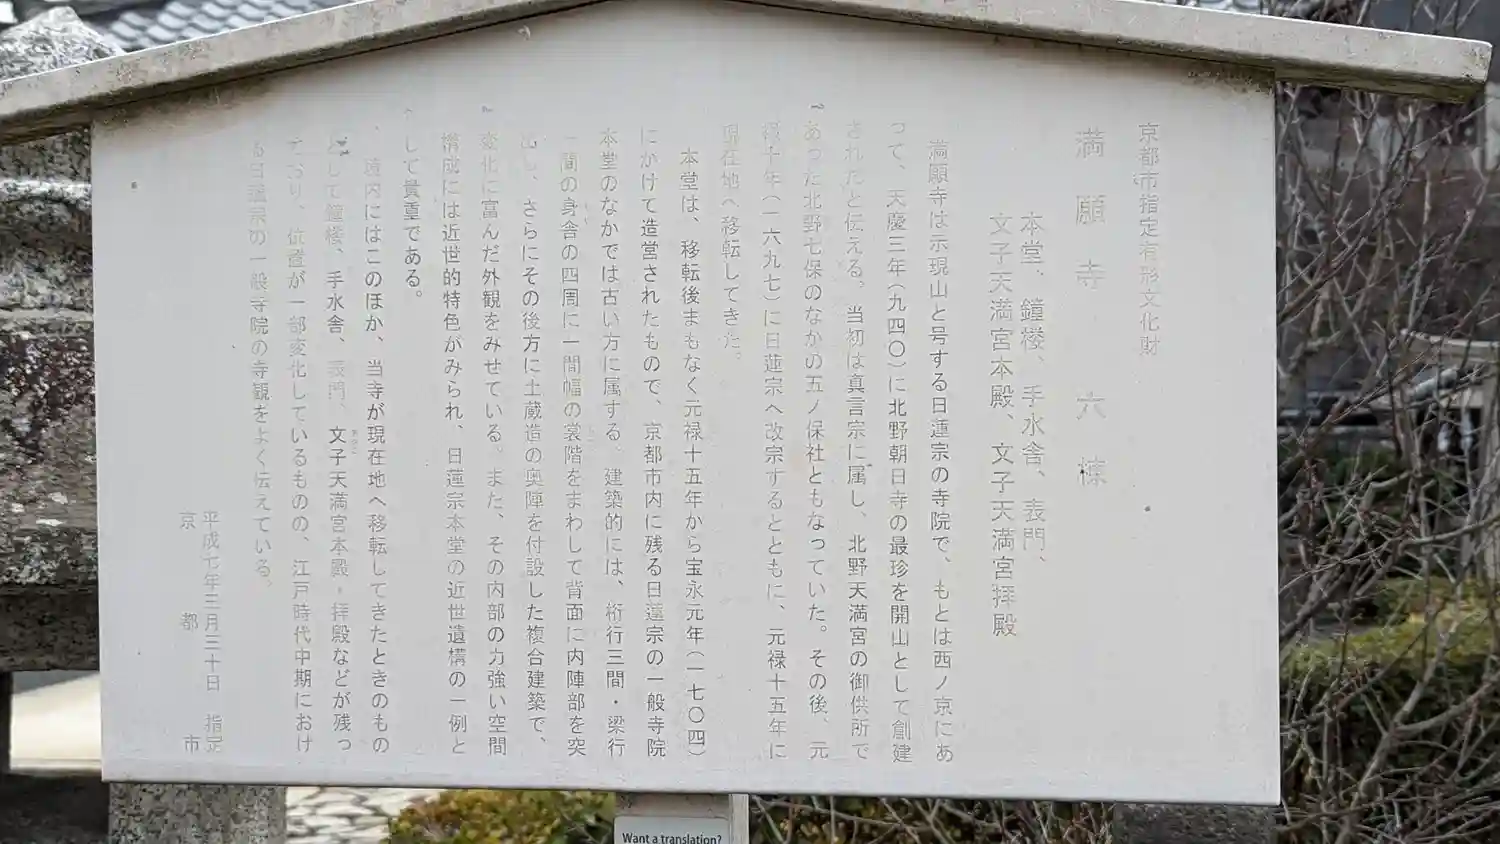 京都市指定有形文化財
満願寺 六棟
本堂、鐘楼、手水舎、表門、
文子天満宮本殿、文子天満宮拝殿
満願寺は示現山と号する日蓮宗の寺院で、もとは西ノ京にあ
って、天慶三年(九四〇)に北野朝日寺の最珍を開山として創建
されたと伝える。当初は真言宗に属し、北野天満宮の御供所で
あった北野七保のなかの五ノ保社ともなっていた。その後、元
禄十年(一六九七)に日蓮宗へ改宗するとともに、元禄十五年に
現在地へ移転してきた。
本堂は、移転後まもなく元禄十五年から宝永元年(一七〇四)
にかけて造営されたもので、京都市内に残る日蓮宗の一般寺院
本堂のなかでは古い方に属する。建築的には、桁行三間・梁行
一間の身舎の四周に一間幅の裳階をまわして背面に内陣部を突
出し、さらにその後方に土蔵造の奥陣を付設した複合建築で、
変化に富んだ外観をみせている。また、その内部の力強い空間
構成には近世的特色がみられ、日蓮宗本堂の近世遺構の一例と
して貴重である。
境内にはこのほか、当寺が現在地へ移転してきたときのもの
として鐘楼、手水舎、表門、文子天満宮本殿・拝殿などが残っ
ており、位置が一部変化しているものの、江戸時代中期におけ
る日蓮宗の一般寺院の寺観をよく伝えている。
平成七年三月三十日 指定
京都市
Want a translation?